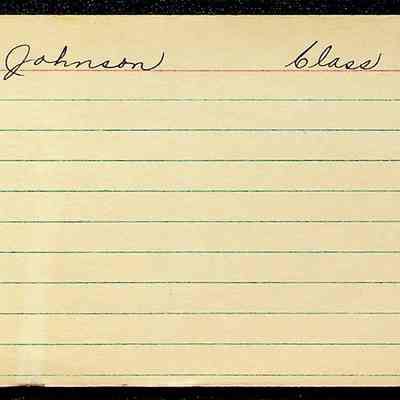 Johnson Class